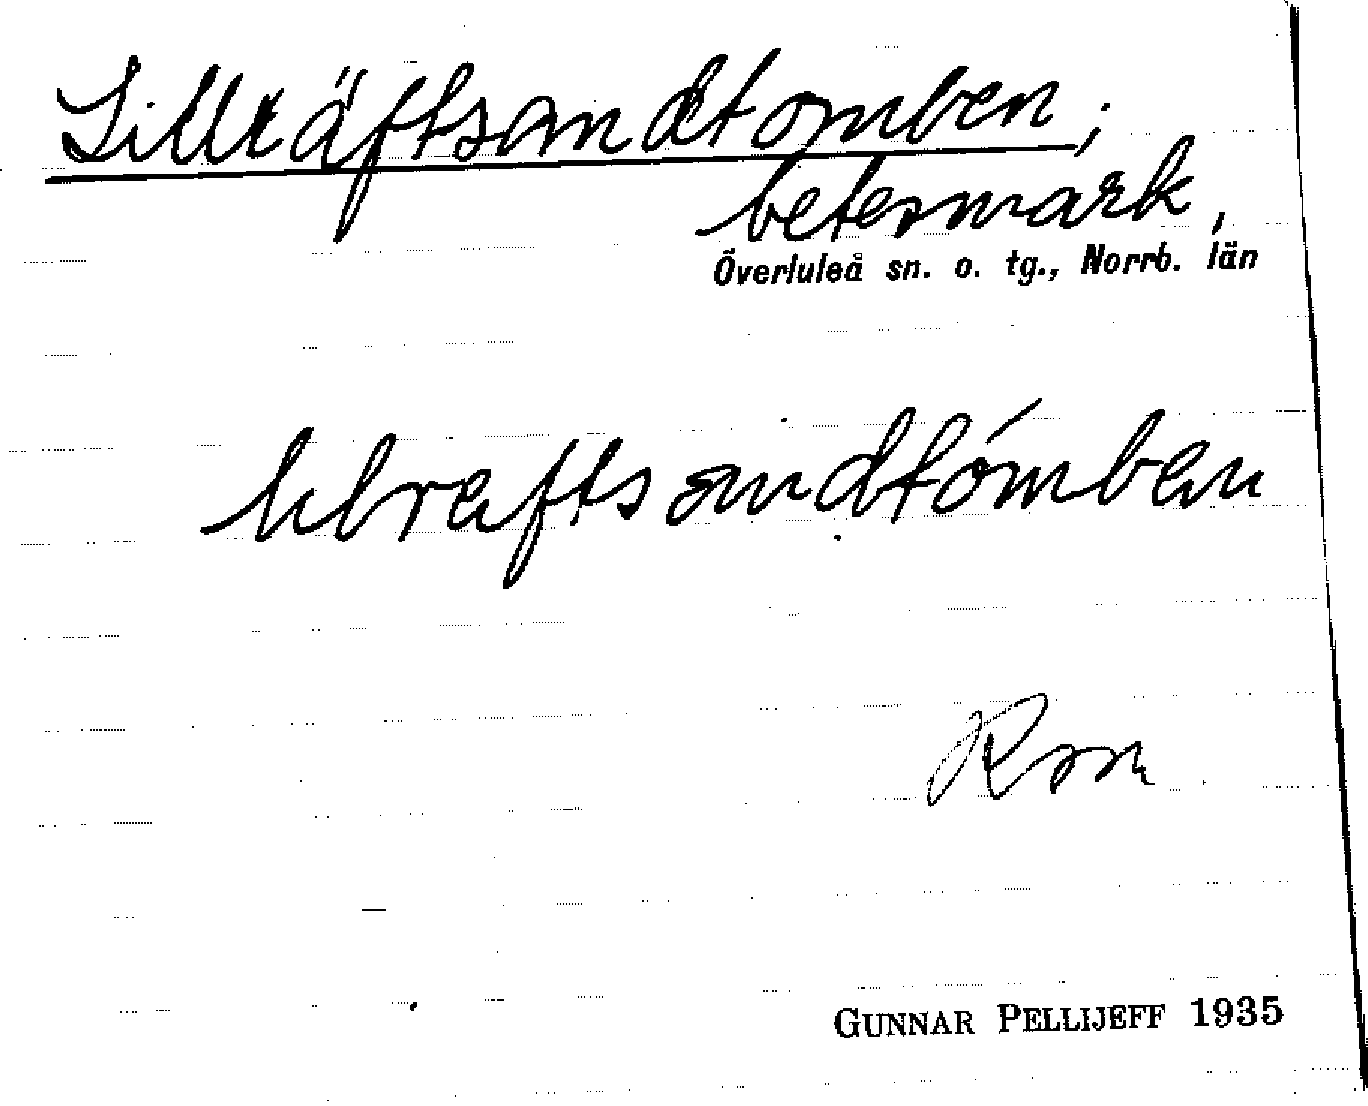 Lillräftsandtomben,
betesmark,
Överluleå sn. o. tg., Norrb. län
lılræftsandtómben
GUNNAR PELLIJEFF 1935